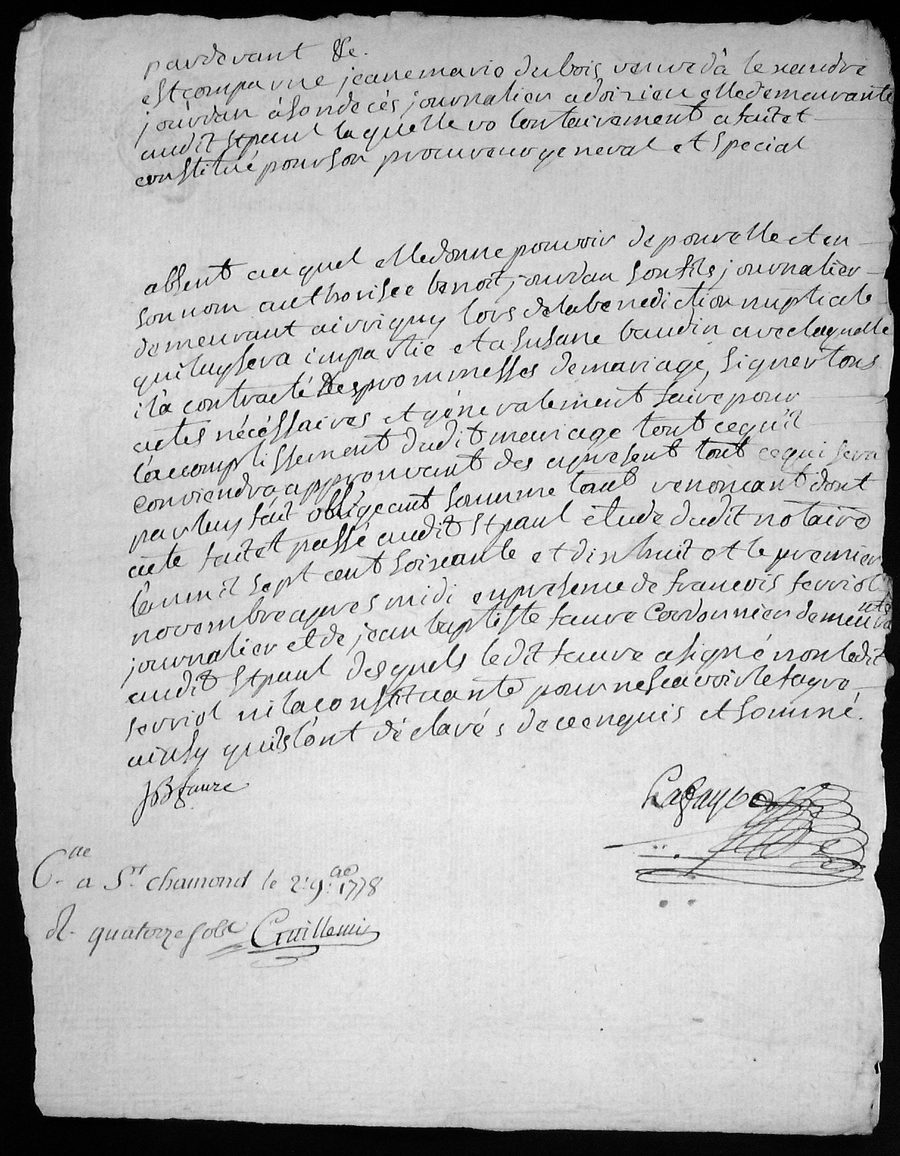 pardevant &c.
est comparue jeanne marie dubois veuve dâ lexandre
jourdan áson decés journalier adoizieu elle demeurante
audit st paul laquelle volontairement afait et
constitué pour son procureur general et special
absent auquel elle donne pouvoir de pour elle et en
son nom authorisée benoit jourdan son fils journalier
demeurant a irrigny lors de la benediction nuptiale
qui luy sera impartie et a susane baudin avec laquelle
il a contracté des prommesses de mariage, signer tous
actes nécéssaires et génèralement faire pour
l'accomplissement dudit mariage tout cequ'il
conviendra approuvant des apresent tout ce qui sera
par luy fait obligeant soumettant renoncant dont
acte fait et passé audit st paul étude dudit notaire
l'an mil sept cent soixante et dix huit et le premier
novembre apres midi en presence de francois ferriol
journalier et de jean baptiste faure cordonnier demeurants
audit st paul desquels le dit faure a signé non ledit
ferriol ni la constituante pour ne scavoir le fayre
ainsy quils l'ont déclarés de ce enquis et sommé.
JB faure
C.lle a St. chamond le 2. 9.bre 1778
R. quatorze sols Guillemin